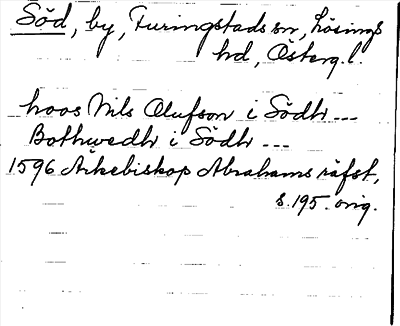 Söd, by, Furingstads sn, Lösings
hd, Österg.l.
hoos Nils Olufson i Södh ---
Bothwedh i Södh ---
1596 Ärkebiskop Abrahams räfst,
s. 195. orig.